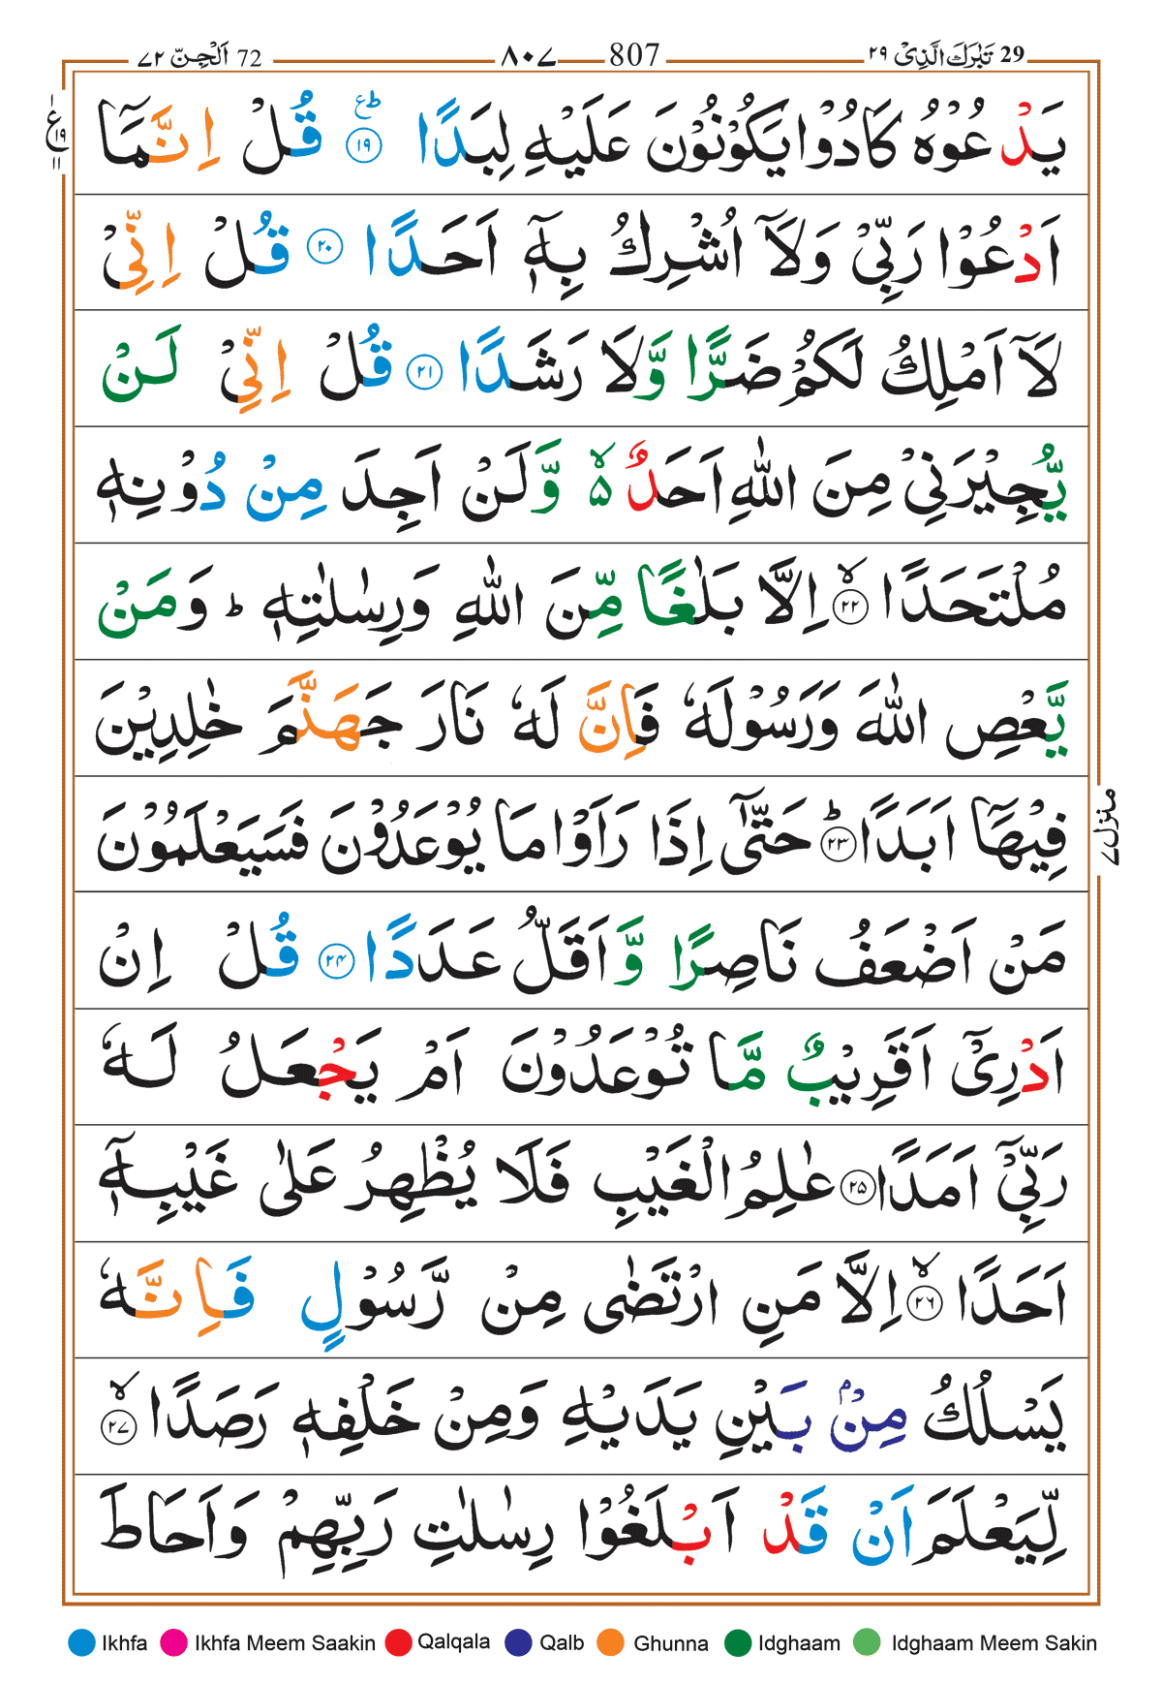 29 تَبٰرَكَ الَّذِیْ ۲۹ 807 ۸۰۷ 72 اَلْجِنّ ۷۲
یَدْعُوْهُ كَادُوْا یَكُوْنُوْنَ عَلَیْهِ لِبَدًا ؕ۠ ۱۹ قُلْ اِنَّمَاۤ
ع ۱۹ ۱۱
اَدْعُوْا رَبِّیْ وَلَاۤ اُشْرِكُ بِهٖۤ اَحَدًا ۲۰ قُلْ اِنِّیْ
لَاۤ اَمْلِكُ لَكُمْ ضَرًّا وَّلَا رَشَدًا ۲۱ قُلْ اِنِّیْ لَنْ
یُّجِیْرَنِیْ مِنَ اللّٰهِ اَحَدٌ ۙ۵ وَّلَنْ اَجِدَ مِنْ دُوْنِهٖ
مُلْتَحَدًا ۙ۲۲ اِلَّا بَلٰغًا مِّنَ اللّٰهِ وَرِسٰلٰتِهٖ ؕ وَمَنْ
یَّعْصِ اللّٰهَ وَرَسُوْلَهٗ فَاِنَّ لَهٗ نَارَ جَهَنَّمَ خٰلِدِیْنَ
فِیْهَاۤ اَبَدًا ؕ۲۳ حَتّٰۤی اِذَا رَاَوْا مَا یُوْعَدُوْنَ فَسَیَعْلَمُوْنَ
منزل۷
مَنْ اَضْعَفُ نَاصِرًا وَّاَقَلُّ عَدَدًا ۲۴ قُلْ اِنْ
اَدْرِیْۤ اَقَرِیْبٌ مَّا تُوْعَدُوْنَ اَمْ یَجْعَلُ لَهٗ
رَبِّیْۤ اَمَدًا ۲۵ عٰلِمُ الْغَیْبِ فَلَا یُظْهِرُ عَلٰی غَیْبِهٖۤ
اَحَدًا ۙ۲۶ اِلَّا مَنِ ارْتَضٰی مِنْ رَّسُوْلٍ فَاِنَّهٗ
یَسْلُكُ مِنْۢ بَیْنِ یَدَیْهِ وَمِنْ خَلْفِهٖ رَصَدًا ۙ۲۷
لِّیَعْلَمَ اَنْ قَدْ اَبْلَغُوْا رِسٰلٰتِ رَبِّهِمْ وَاَحَاطَ
Ikhfa Ikhfa Meem Saakin Qalqala Qalb Ghunna Idghaam Idghaam Meem Sakin